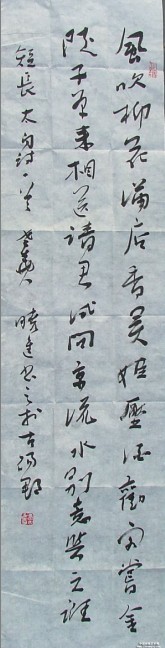 風吹柳花滿店香吴姬壓酒勸客嘗金
陵子弟来相送請君試問東流水别意與之誰
短長 太白詩一首